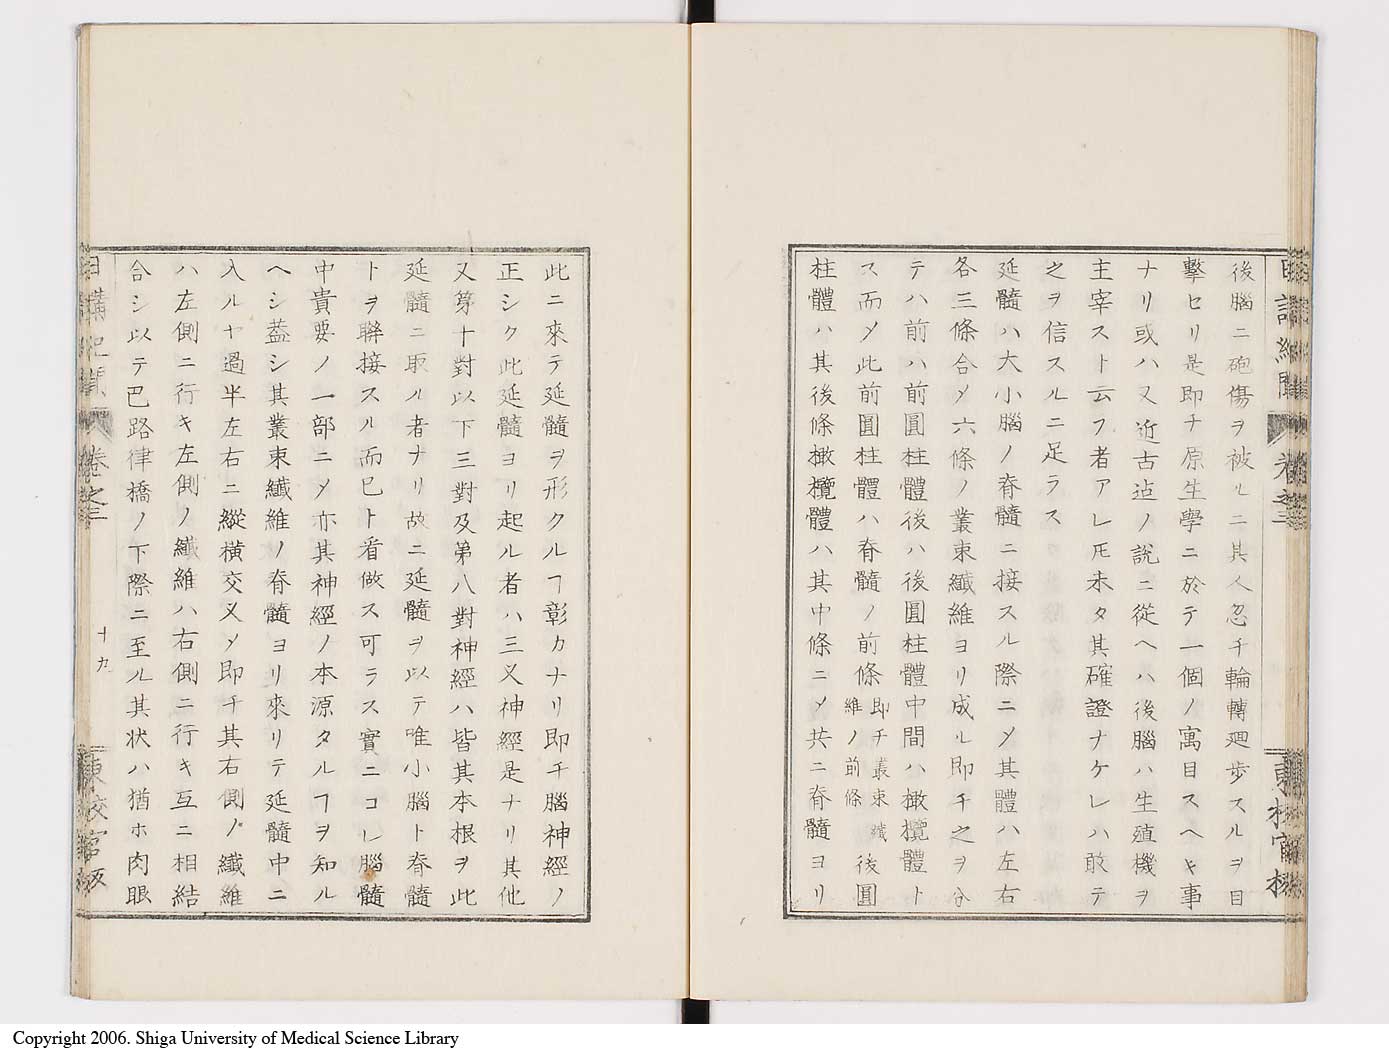 後腦ニ砲傷ヲ被ルニ其人忽チ輪轉廻歩スルヲ目
擊セリ是即チ原生學ニ於テ一個ノ寓目スヘキ事
ナリ或ハ又近古迠ノ說ニ從ヘハ後腦ハ生殖機ヲ
主宰スト云フ者アレ𪜈未タ其確證ナケレハ敢テ
之ヲ信スルニ足ラス
延髓ハ大小腦ノ脊髓ニ接スル際ニ〆其體ハ左右
各三條合〆六條ノ叢束纖維ヨリ成ル即チ之ヲ分
テハ前ハ前圓柱體後ハ後圓柱體中間ハ橄欖體ト
ス而〆此前圓柱體ハ脊髓ノ前條即チ叢束纖維ノ前條後圓
柱體ハ其後條橄欖體ハ其中條ニ〆共ニ脊髓ヨリ
此ニ來テ延髓ヲ形クルヿ彰カナリ即チ腦神經ノ
正シク此延髓ヨリ起ル者ハ三叉神經是ナリ其他
又第十對以下三對及第八對神經ハ皆其本根ヲ此
延髓ニ取ル者ナリ故ニ延髓ヲ以テ唯小腦ト脊髓
トヲ聨接スル而已ト看做ス可ラス實ニコレ腦髓
中貴要ノ一部ニ〆亦其神經ノ本源タルヿヲ知ル
ヘシ葢シ其叢束纖維ノ脊髓ヨリ來リテ延髓中ニ
入ルヤ過半左右ニ縱橫交叉〆即チ其右側ノ纖維
ハ左側ニ行キ左側ノ纖維ハ右側ニ行キ互ニ相結
合シ以テ巴路律橋ノ下際ニ至ル其状ハ猶ホ肉眼
日講記聞 卷之三 十九 東校官板
Copyright 2006. Shiga University of Medical Science Library